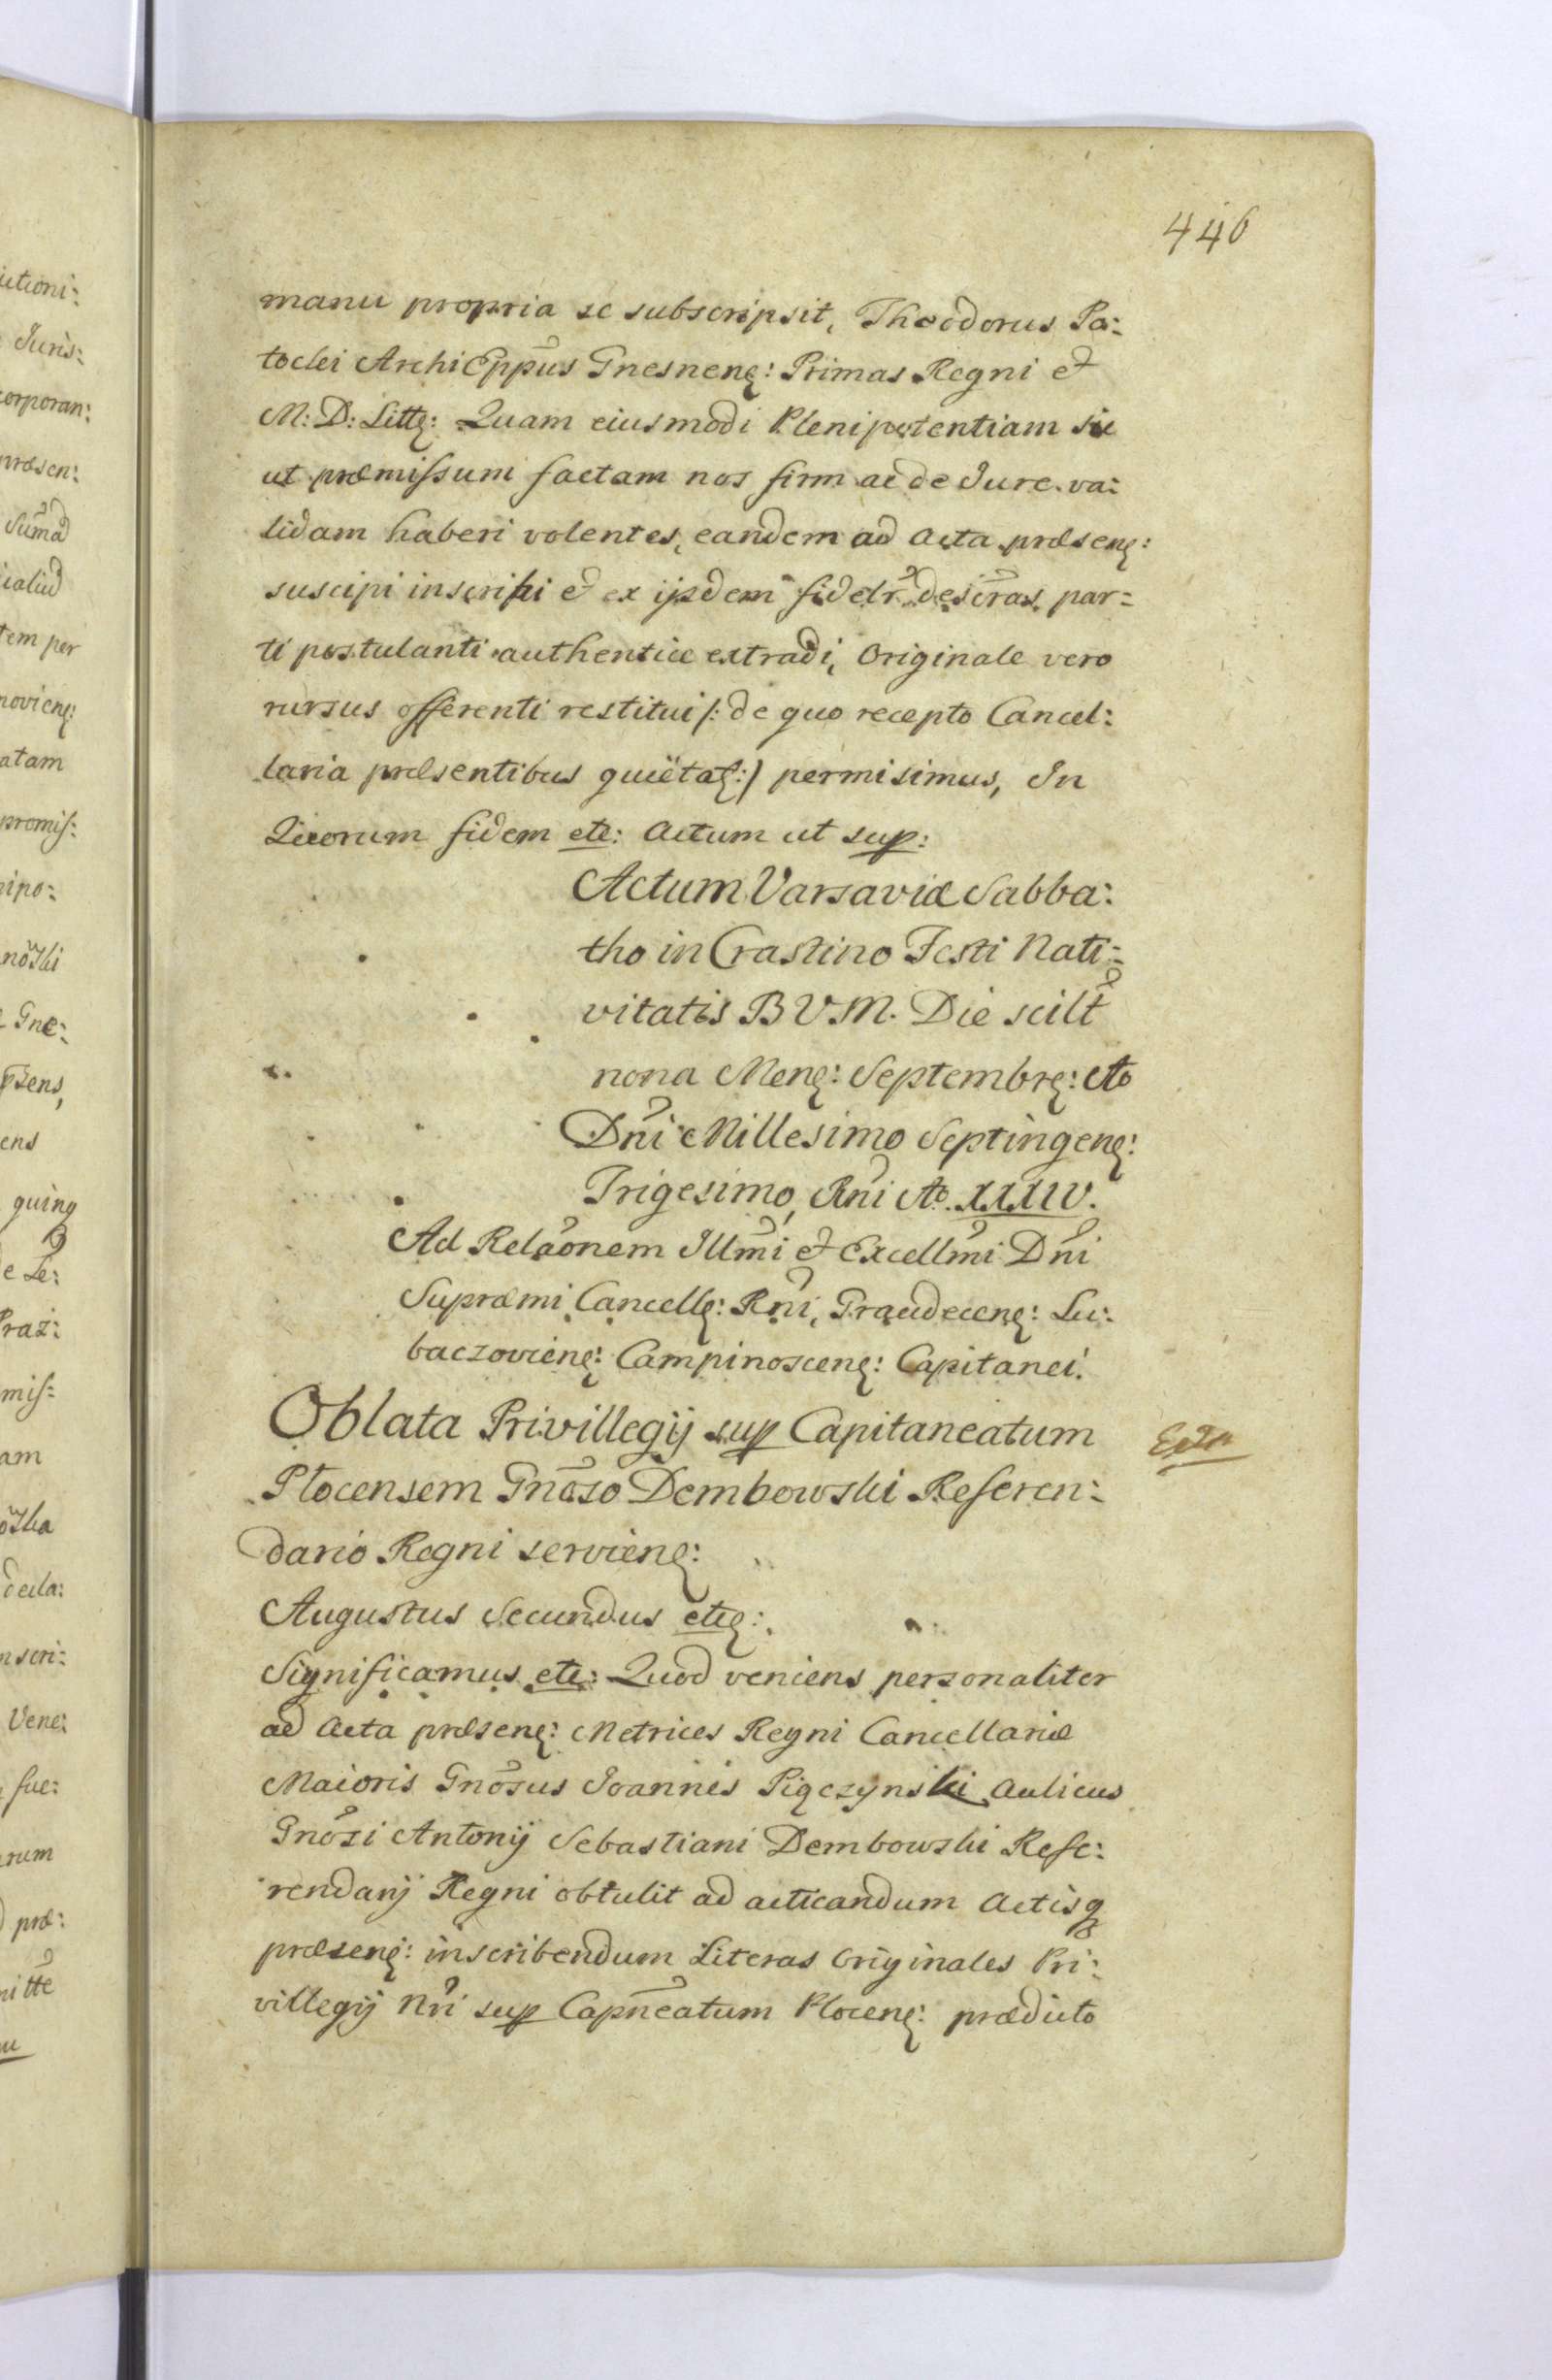 446
manu propria se subscripsit, Theodorus Po:
tocki ArchiEppus Gnesnenꝭ: Primas Regni et
M: D: Littꝭ: Quam eiusmodi Plenipotentiam sic
ut præmissum factam nos firm ac de Jure va:
lidam haberi volentes, eandem ad Acta præsenꝭ:
suscipi inscribi et ex ijsdem fidelr descras par=
ti postulanti authentice extradi, Originale vero
rursus offerenti restitui /: de quo recepto Cancel:
laria præsentibus quietatꝭ:/ permisimus, In
Quorum fidem etc: Actum ut sup:
Actum Varsaviæ Sabba:
tho in Crastino Festi Nati:
vitatis BVM. Die scilt
nona Menꝭ: Septembrꝭ: Ao
Dni Millesimo Septingenꝭ:
Trigesimo, Rni Ao. XXXIV.
Ad Relaonem Illmi et Excellmi Dni
Supræmi Cancellꝭ: Rni, Graudecenꝭ: Lu:
baczovienꝭ: Campinoscenꝭ: Capitanei.
Oblata Privillegij sup Capitaneatum
Plocensem Gnoso Dembowski Referen:
dario Regni servienꝭ:
Augustus Secundus etcꝭ:
Significamus etc: Quod veniens personaliter
ad Acta præsenꝭ: Metrices Regni Cancellariæ
Maioris Gnosus Joannes Pięczynski Aulicus
Gnosi Antonij Sebastiani Dembowski Refe:
rendarij Regni obtulit ad acticandum Actisq
præsenꝭ: inscribendum Literas Originales Pri:
villegij Nri sup Capneatum Plocenꝭ: prædicto